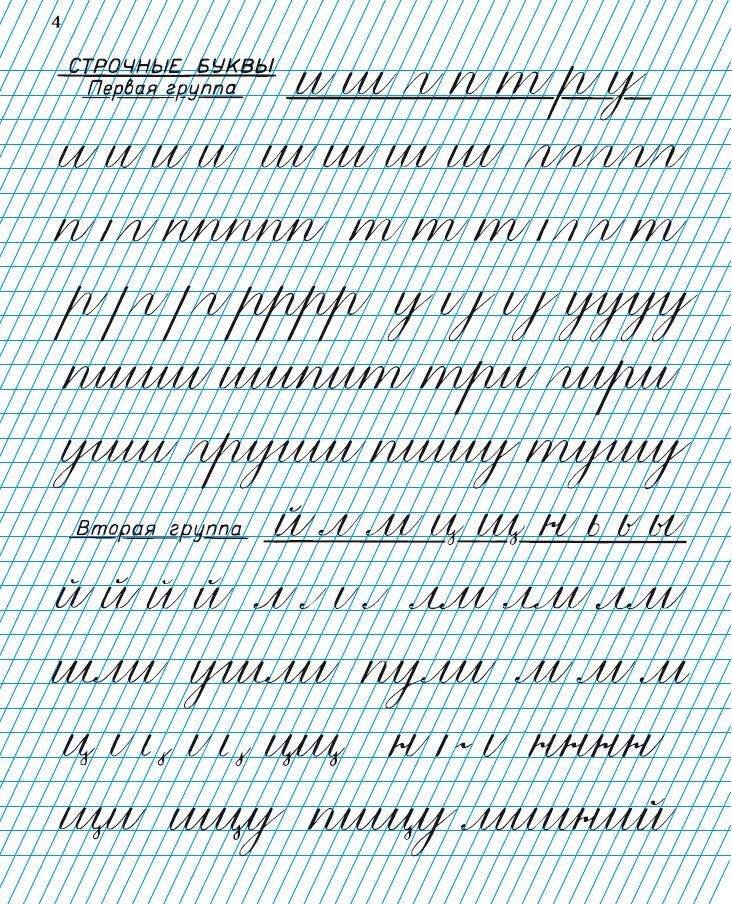 4
СТРОЧНЫЕ БУКВЫ
Первая группа и ш г п т р у
и и и и ш ш ш ш г п п п п
п г п п п п п т т т г т
р г г р р р р у у у у у у у
пиши шипит три шри
уши груши пишу тушу
Вторая группа й л м ц щ н ь ъ ы
й й й й л л лм лм лм
шли ушли пули м м м
ц ц щ н н н н н
щи ищу пищу лишний